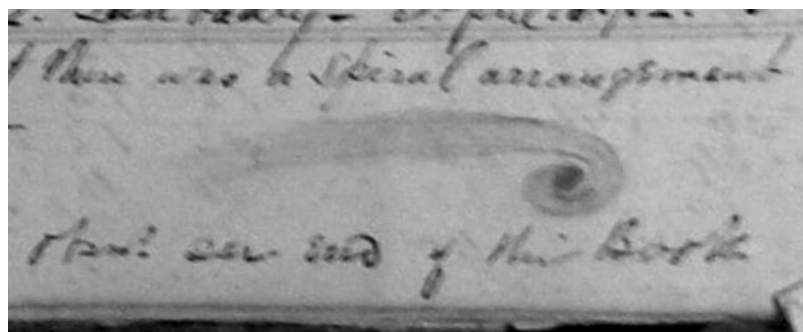 there was a spiral arrangement
obsns. see end of this Book